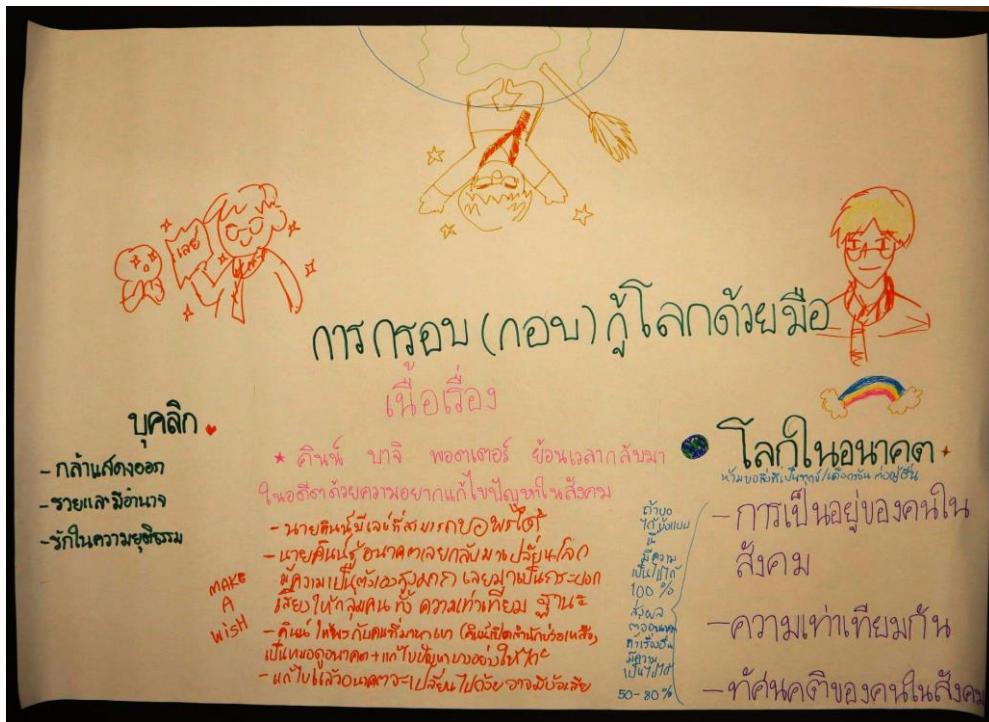 เลย์
การกรอบ(กอบ)กู้โลกด้วยมือ
เนื้อเรื่อง
บุคลิก
- กล้าแสดงออก
- รวยและมีอำนาจ
- รักในความยุติธรรม
* คินน์ บาจิ พอตเตอร์ ย้อนเวลากลับมา
ในอดีตด้วยความอยากแก้ไขปัญหาในสังคม
- นายคินน์มีเลย์ที่สามารถขอพรได้
- นายคินน์รู้อนาคตเลยกลับมาเปลี่ยนโลก
มีความเป็นตัวเองสูงมาก เลยมาเป็นกระบอก
เสียงให้กลุ่มคน ทั้ง ความเท่าเทียม ฐานะ
- คินน์ ให้พรกับคนที่มาหาเขา (คินน์เปิดสำนักช่วยเหลือ)
เป็นหมอดูอนาคต+แก้ไขปัญหาบางอย่างให้
- แก้ไขแล้วอนาคตจะเปลี่ยนไปด้วย อาจมีข้อเสีย
MAKE
A
WISH
ถ้าขอ
มีความ
เป็นไปได้
100 %
ส่งผล
ต่ออนาคต
มีความ
เป็นไปได้
50-80%
โลกในอนาคต
- การเป็นอยู่ของคนใน
สังคม
- ความเท่าเทียมกัน
- ทัศนคติของคนในสังคม